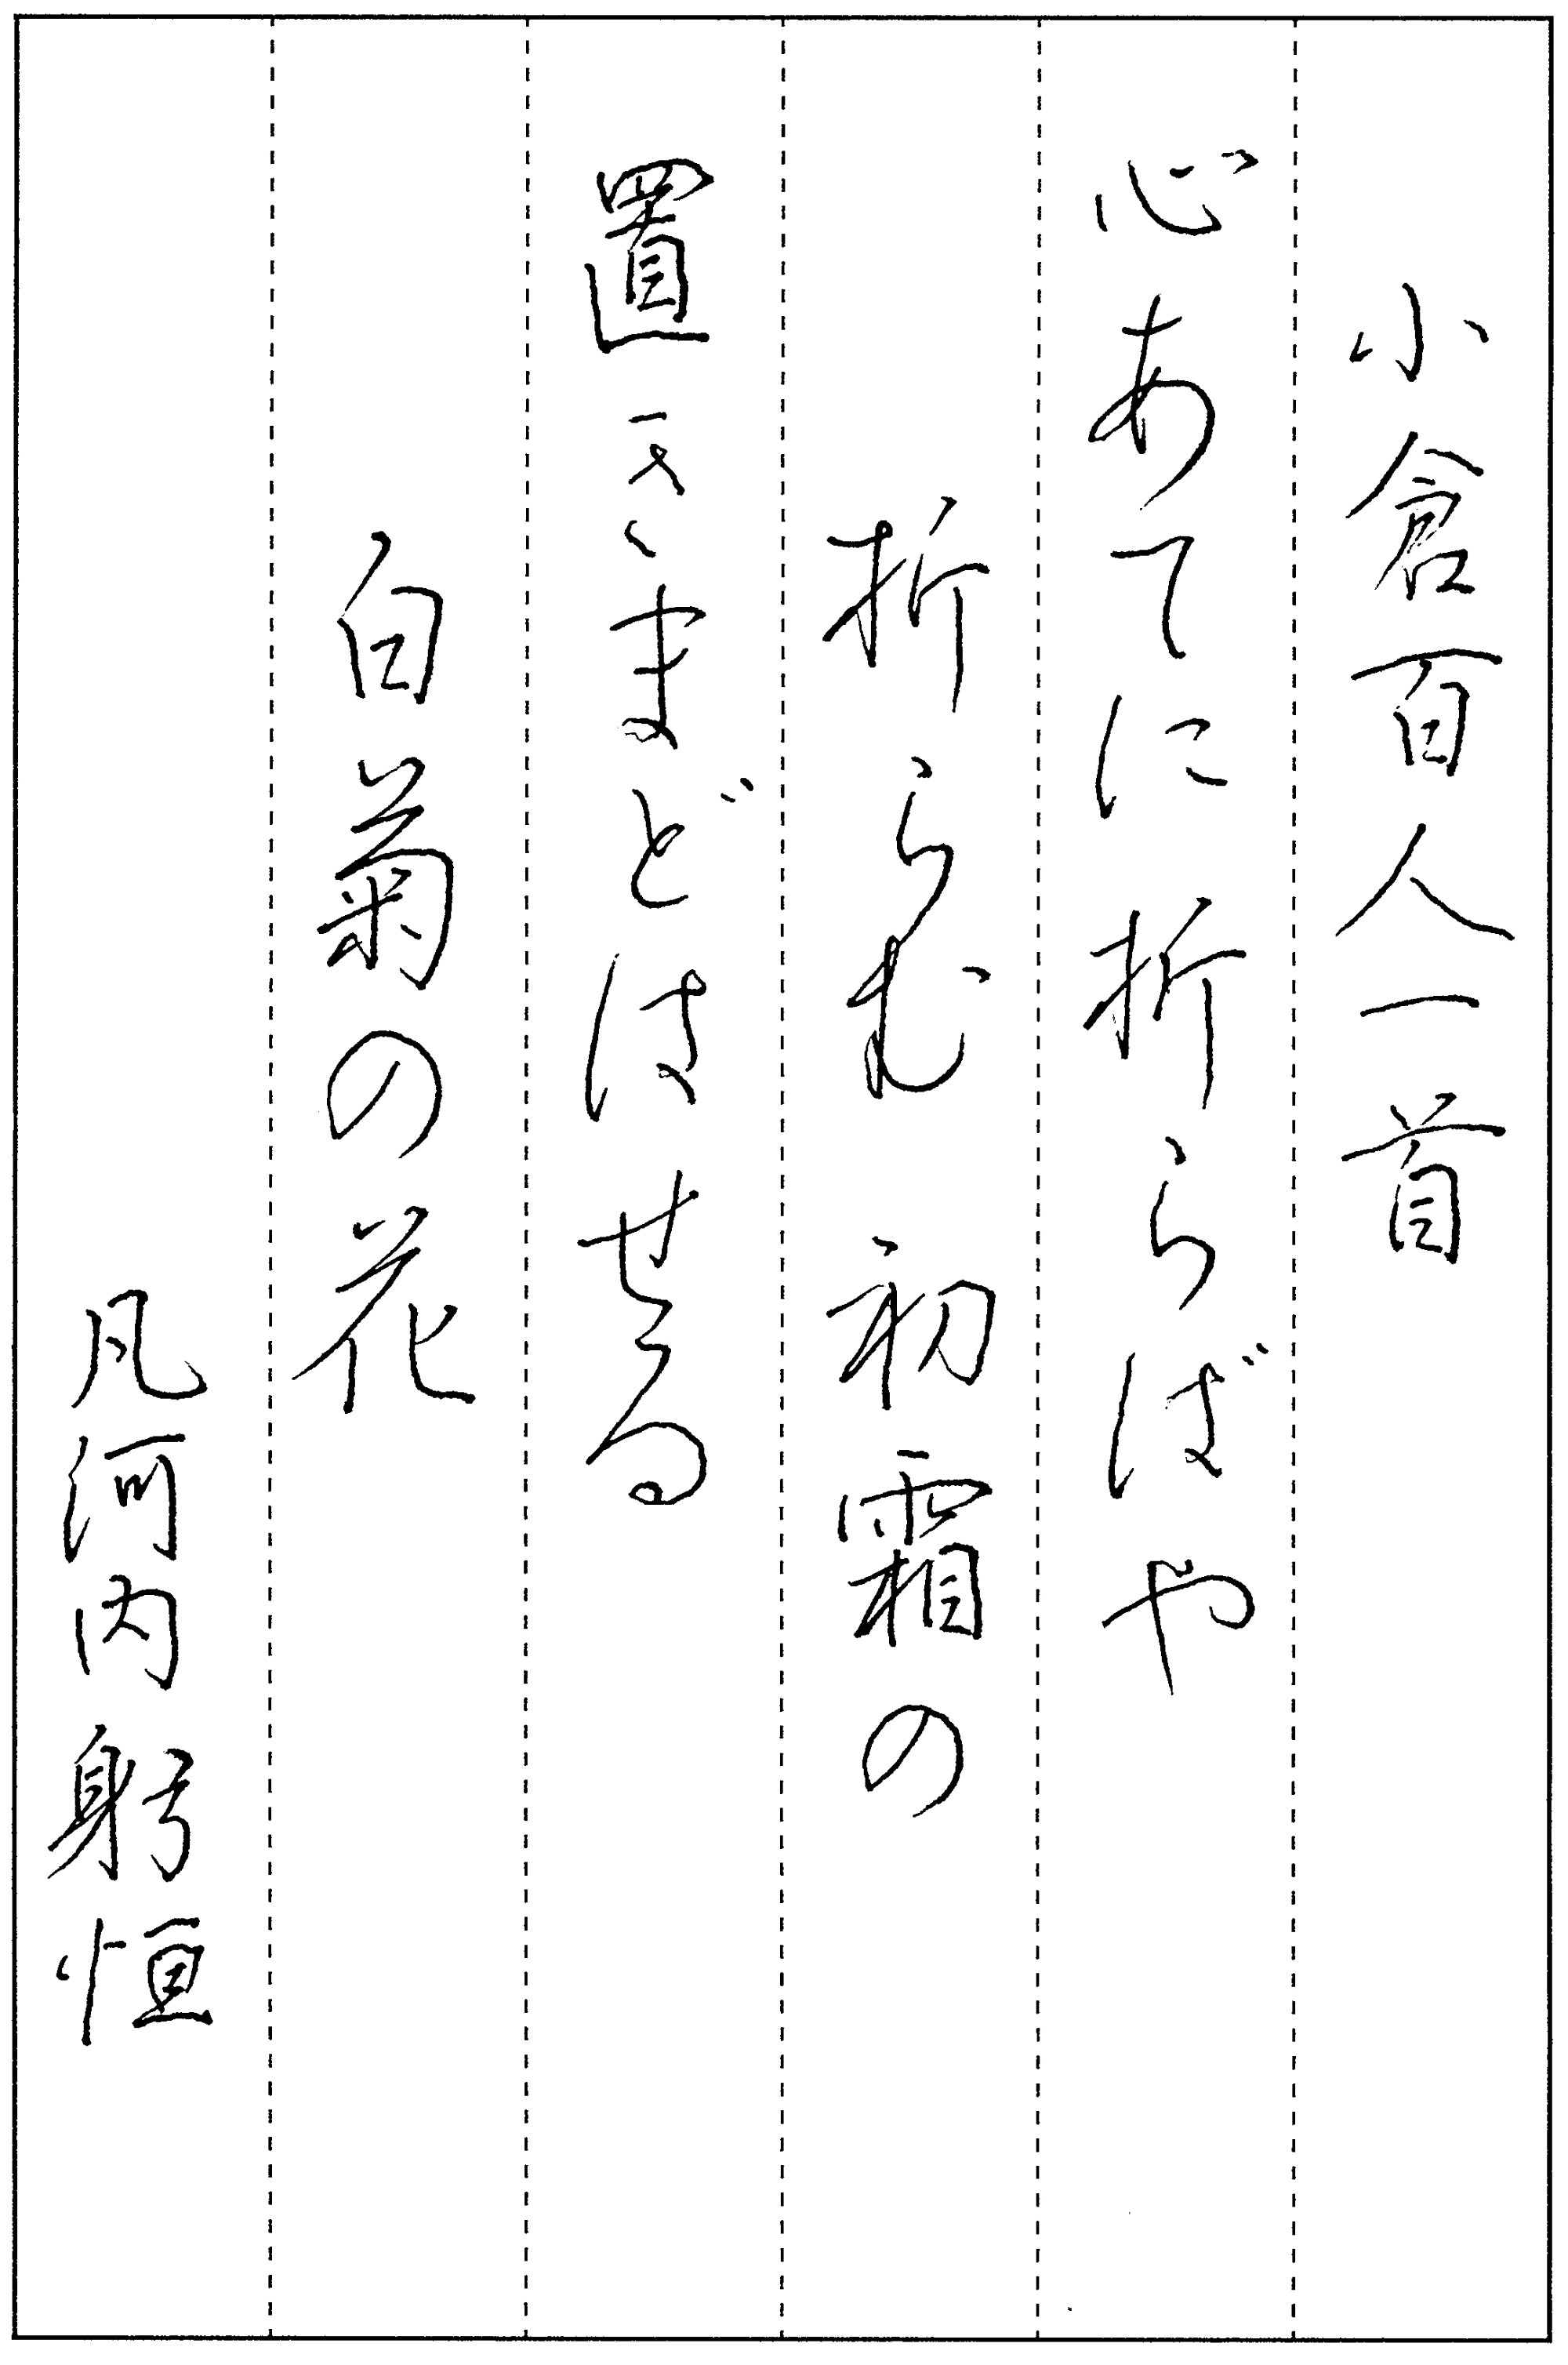 小倉百人一首
心あてに折らばや
折らむ初霜の
置きまどはせる
白菊の花
凡河内躬恒